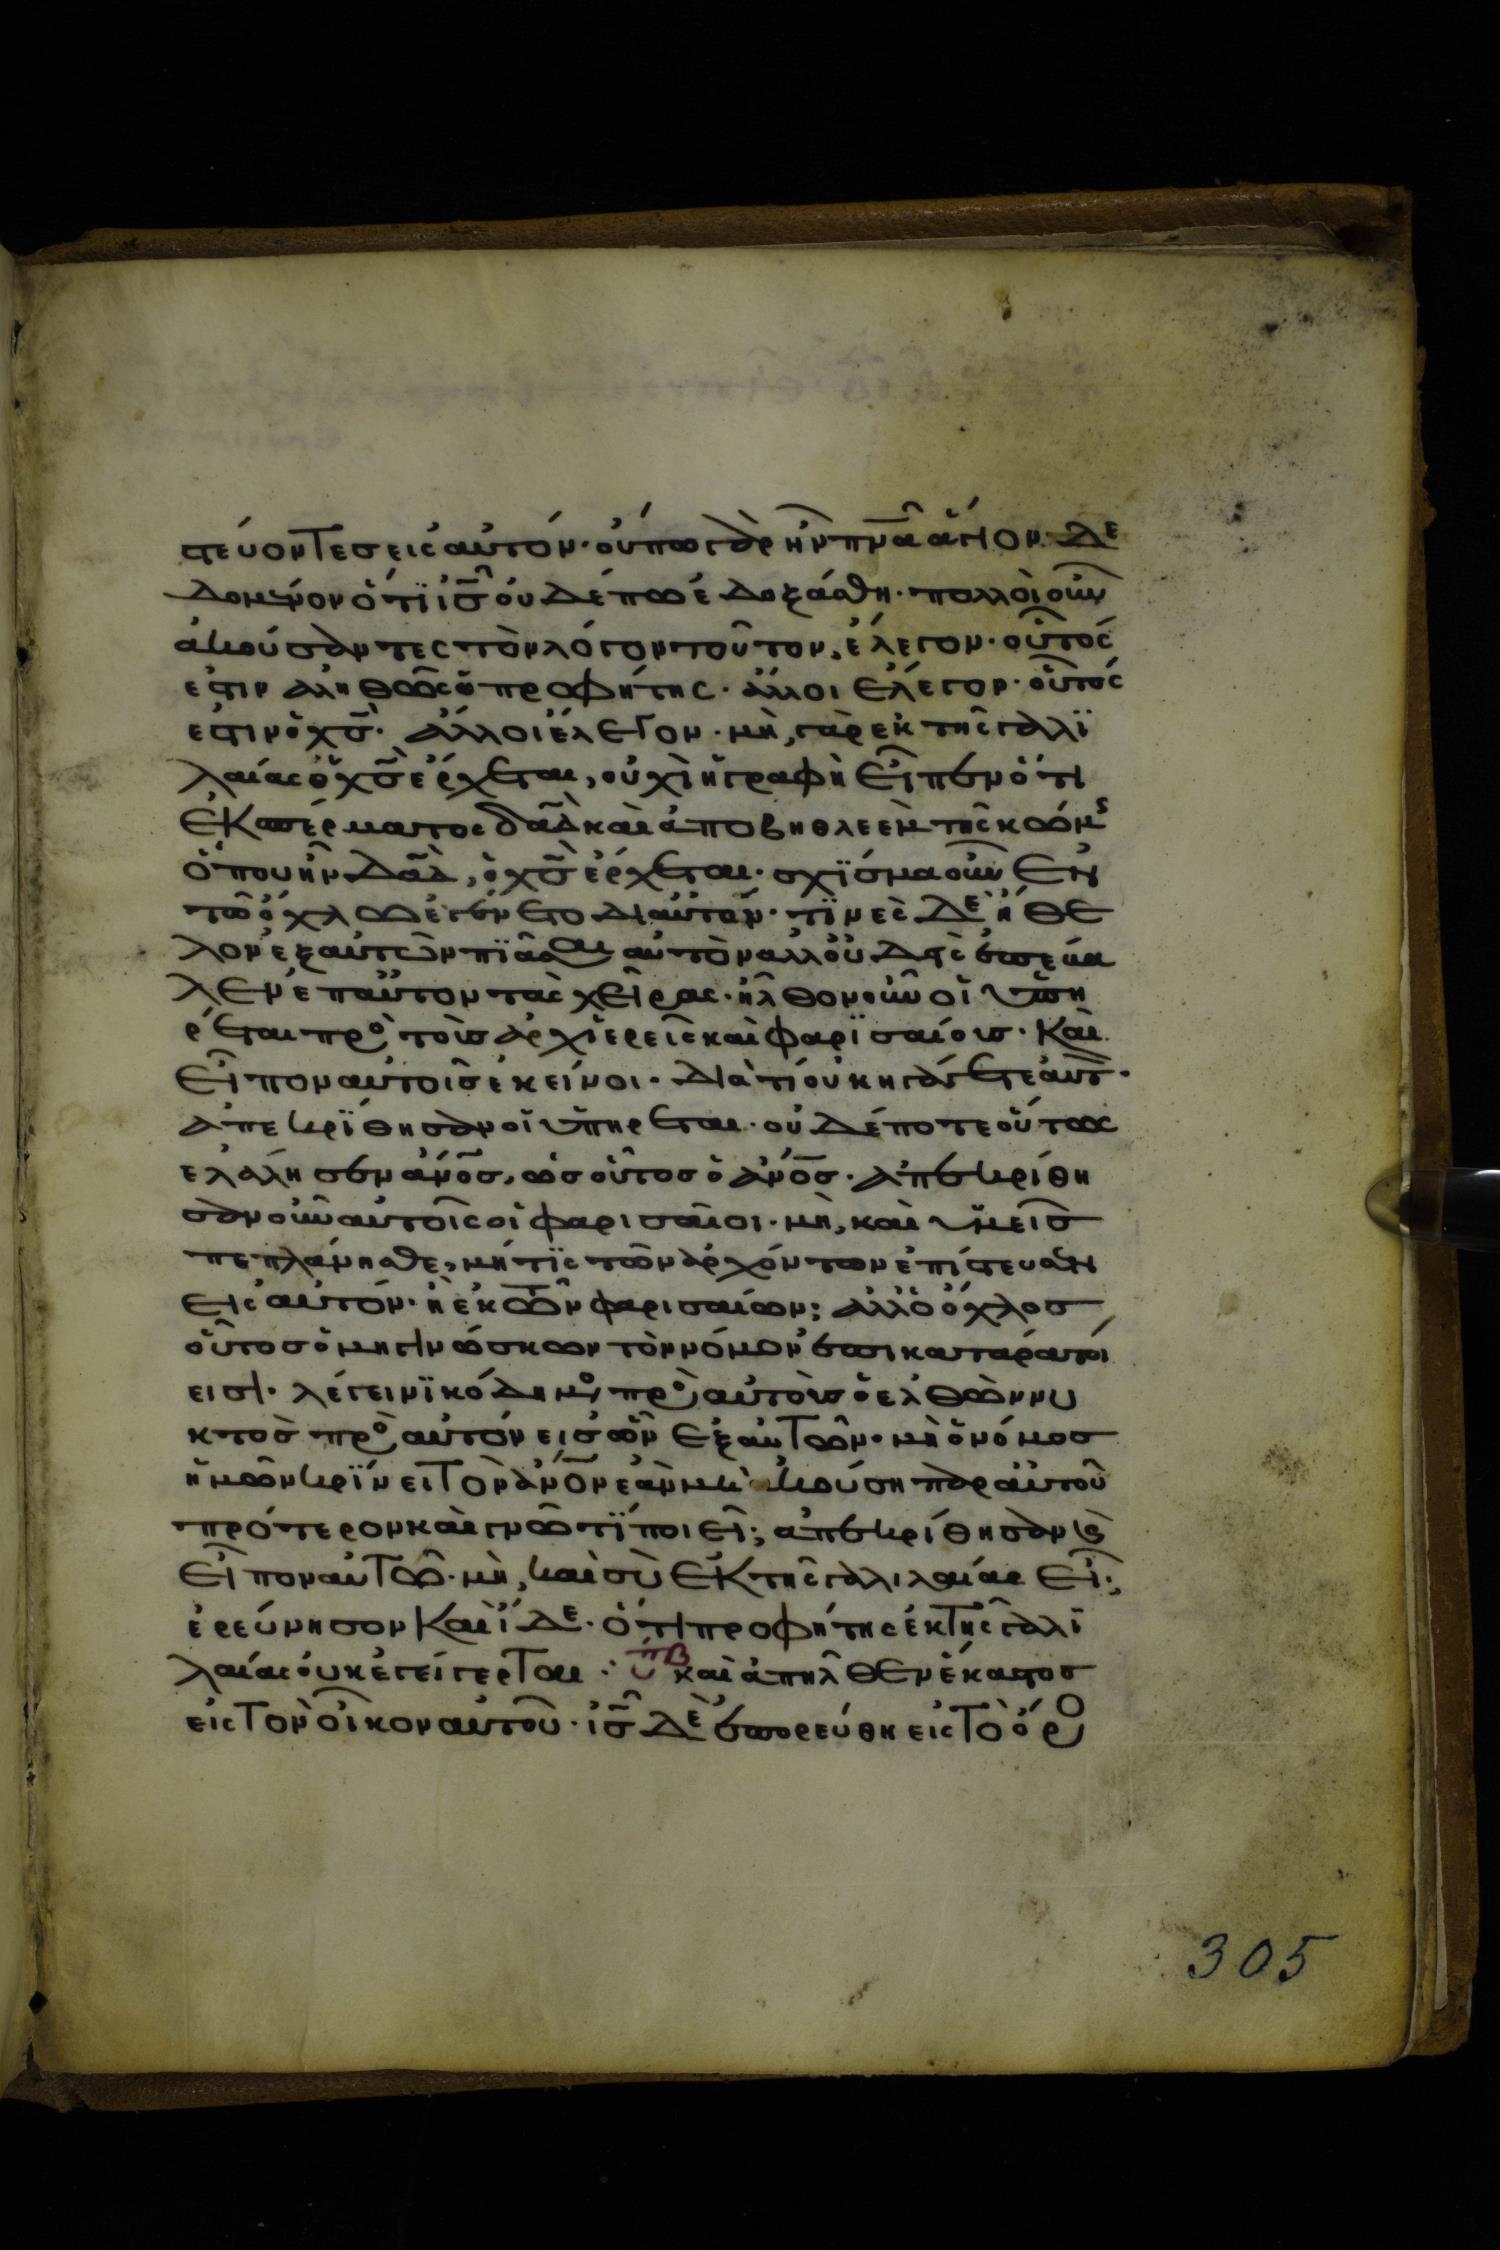 στεύοντες εἰς αὐτόν· οὔπω γὰρ ἦν πν̅α ἅγιον δε
δομένον ὅτι ϊς̅ οὐδέπω ἐδοξάσθη· πολλοὶ οὖν
ἀκούσαντες τὸν λόγον τοῦτον, ἔλεγον· οὗτός
ἐστιν ἀληθῶς ὁ προφήτης· ἄλλοι ἔλεγον· οὗτός
ἐστιν ὁ χς̅· ἄλλοι ἔλεγον· μὴ, γὰρ ἐκ τῆς γαλϊ
λαίας ὁ χς̅ ἔρχεται, οὐχὶ ἡ γραφὴ εἶπεν ὅτι
ἐκ σπέρματος δα̅δ καὶ ἀπο βηθλεὲμ τῆς κώμς
ὅπου ἦν δα̅δ, ὁ χς̅ ἔρχεται· σχϊσμα οὖν ἐν
τῶ ὄχλω ἐγένετο δι αὐτόν· τϊνὲς δὲ ἤθε
λον ἐξ αὐτῶν πϊάσαι αὐτὸν ἀλλ οὐδεὶς ἐπέβα
λεν ἐπ αὐτον τὰς χεῖρας· ἦλθον οὖν οἱ ὑπη
ρέται πρὸ τοὺς ἀρχϊερεῖς καὶ φαρϊσαίους· καὶ
εἶπον αὐτοῖς ἐκείνοι· διὰ τί οὐκ ἠγάγετε αὐτ·
ἀπεκρϊθησαν οἱ ὑπηρέται· οὐδέποτε οὕτως
ἐλάλησεν ἀν̅ος, ὡς οὗτος ὁ ἀν̅ος· ἀπεκρίθη
σαν οὖν αὐτοῖς οἱ φαρισαῖοι· μὴ, καὶ ὑμεῖς
πεπλάνησθε, μή τϊς τῶν ἀρχόντων ἐπίστευσεν
εἰς αὐτόν· ἢ ἐκ τῶν φαρισαίων; ἀλλ ὁ ὄχλος
οὗτος ὁ μὴ γινώσκων τὸν νόμον ἐπικατάρατοί
εισι· λέγει νϊκόδημο πρὸ αὐτοὺς ὁ ἐλθὼν νυ
κτὸς πρὸ αὐτόν εἷς ὢν ἐξ αὐτῶν· μὴ ὁ νόμος
ἡμῶν κρϊνει τὸν ἀν̅ον ἐὰν μὴ ἀκούση παρ αὐτοῦ
πρότερον καὶ γνῶ τϊ ποιεῖ; ἀπεκρίθησαν ϗ
εἶπον αὐτῶ· μὴ, καὶ σὺ ἐκ τῆς γαλιλαίας εἶ;
ἐρεύνησον καὶ ἴδε· ὅτι προφήτης ἐκ τῆς γαλϊ
λαίας οὐκ ἐγείγερται ·: καὶ ἀπῆλθεν ἕκαστος
εἰς τὸν οἶκον αὐτοῦ· ἰς̅ δὲ ἐπορεύθη εἰς τὸ όρο
305